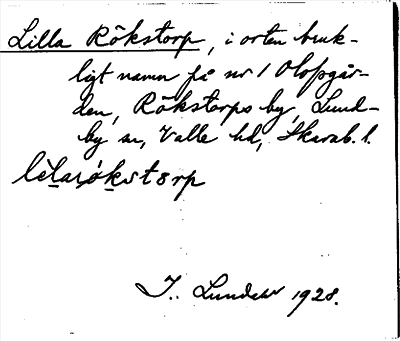 Lilla Rökstorp, i orten bruk-
ligt namn på nr 1 Olofsgår-
den, Rökstorps by, Lund-
by sn, Valle hd, Skarab. l.
J. Lundahl 1928.